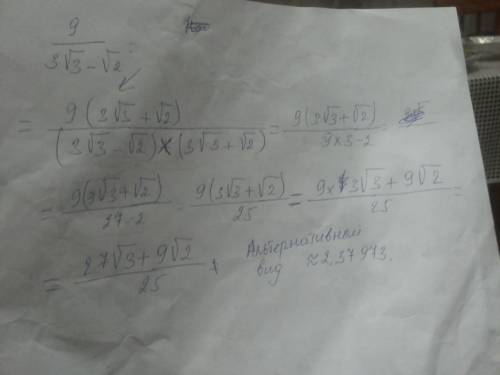 9 / (3√3 − √2) =
= 9(3√3 + √2) / ((3√3 − √2) × (3√3 + √2)) = 9(3√3 + √2) / (9 × 3 − 2) =
= 9(3√3 + √2) / (27 − 2) = 9(3√3 + √2) / 25 = (9 × 3√3 + 9√2) / 25 =
= (27√3 + 9√2) / 25 Альтернативный
вид ≈ 2,37973.